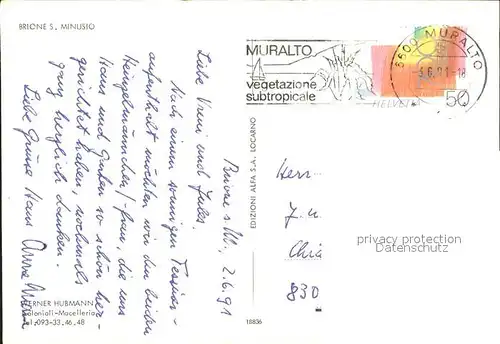 BRIONE S., MINUSIO
Brione s. M., 2.6.91
Liebe Vreni und Jules.
Nach einem sonnigen Tessin-
aufenthalt möchten wir den beiden
Heinzelmännchen/-frau, die uns
Haus und Garten so schön her-
gerichtet haben, nochmals
ganz herzlich danken.
Liebe Grüsse Hans
WERNER HUBMANN
Coloniali-Macelleria
Tel. 093-33.46.48
EDIZIONI ALFA S.A. LOCARNO
18836
MURALTO
vegetazione
subtropicale
6600 MURALTO
-3.6.91-18
HELVETIA
50
Herr
J. u.
Chia
830
privacy protection
Datenschutz